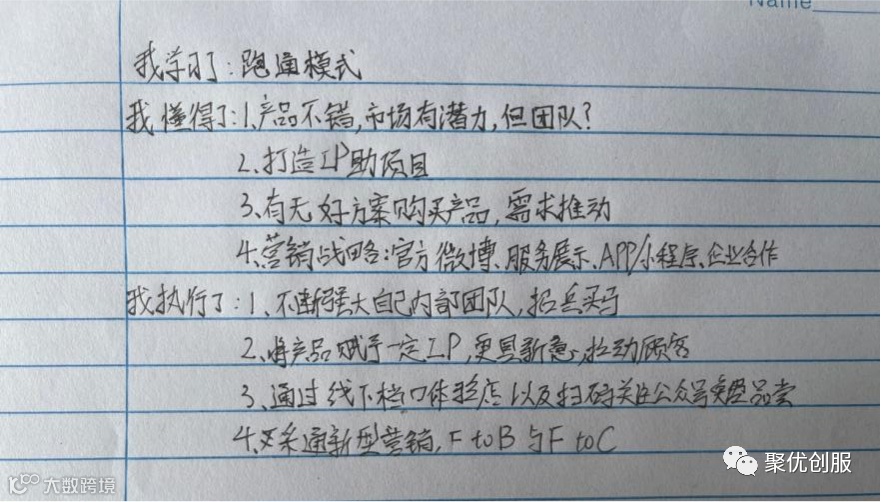 Name
我学习了：跑通模式
我懂得了：1.产品不错，市场有潜力，但团队？
2、打造IP助项目
3、有无好方案购买产品，需求推动
4、营销战略：官方微博、服务展示、APP/小程序、企业合作
我执行了：1、不断强大自己内部团队，招兵买马
2、将产品赋予一定IP，更具新意，拉动顾客
3、通过线下档口体验店以及扫码关注公众号品尝
4、采通新型营销，F to B 与 F to C
大数跨境
聚优创服